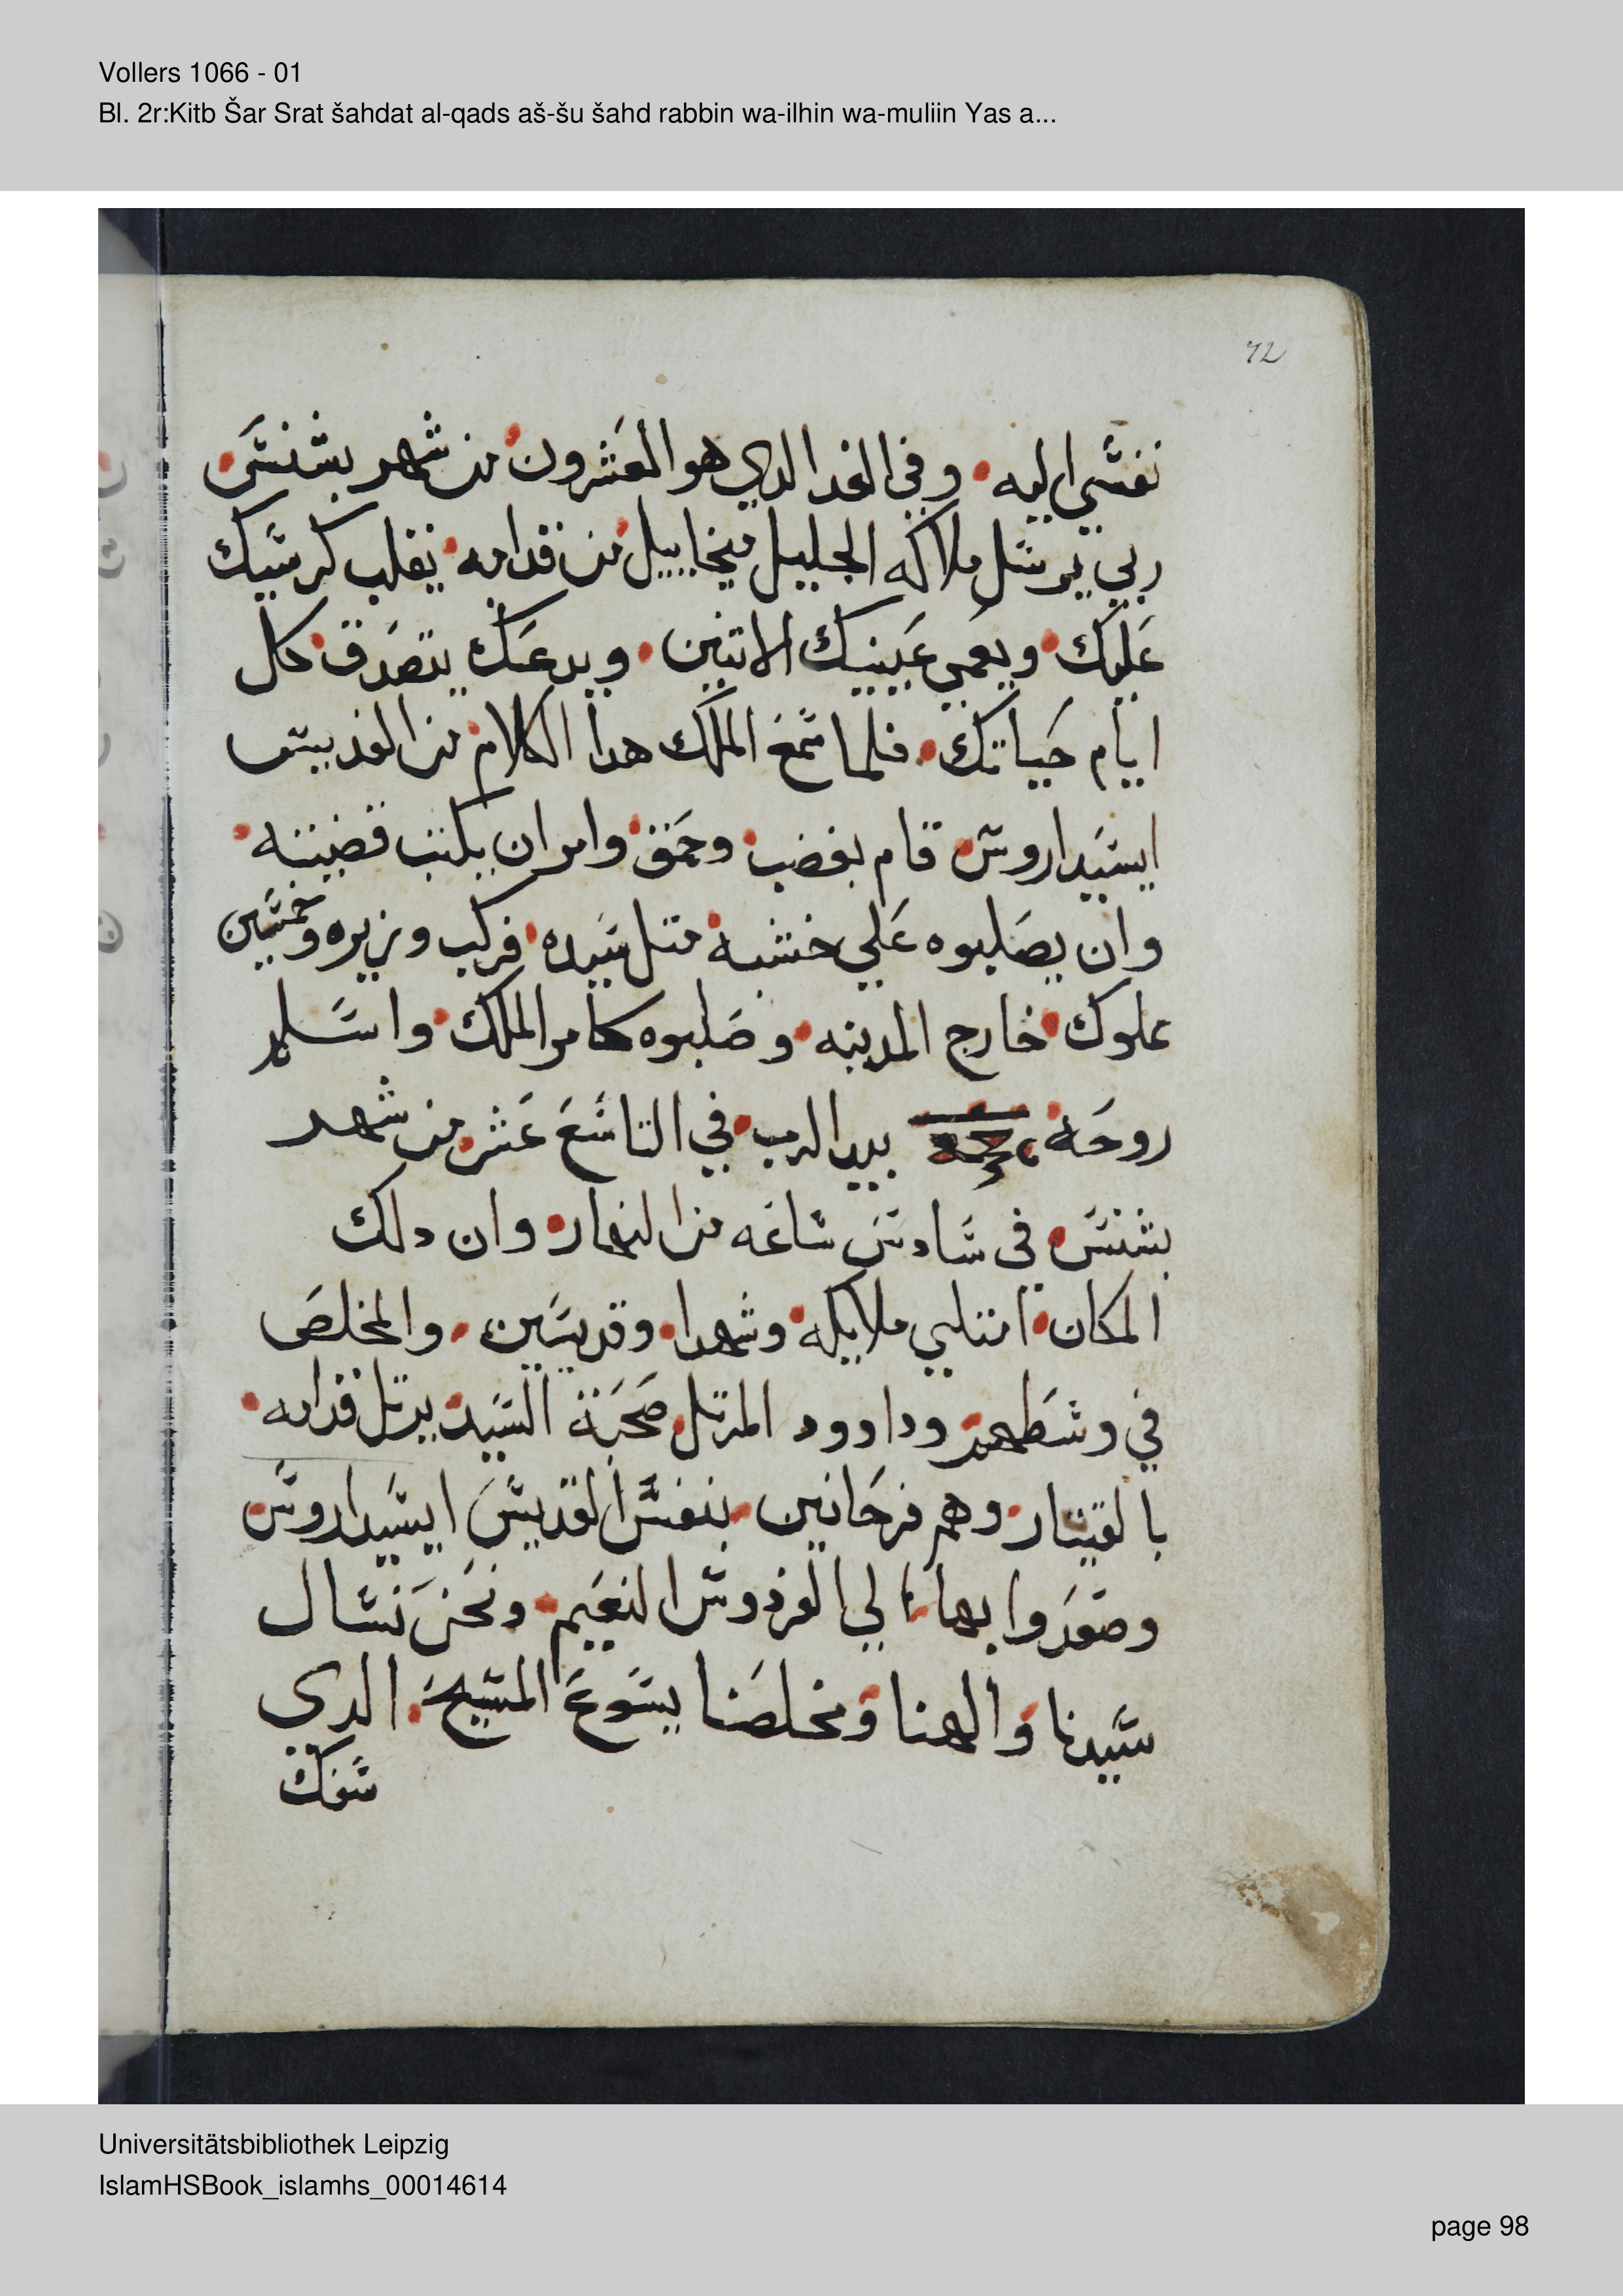 Vollers 1066 - 01
Bl. 2r:Kitb Šar Srat šahdat al-qads aš-šu šahd rabbin wa-ilhin wa-muliin Yas a...
72
نفسي اليه وفي الغد الدي هو العشرون من شهر بشنس
ربي يرسل ملاكه الجليل ميخاييل من قدامه يقلب كرسيك
عليك ويعمي عينيك الاتنين ويدعك يتصدق كل
ايام حياتك فلما سمع الملك هدا الكلام من القديس
ايسيداروس قام بغضب وحمق وامر ان يكتب قضيته
وان يصلبوه علي خشبه متل سيده فركب وزيره وخمسين
مملوك خارج المدينه وصلبوه كامر الملك واسلم
روحه بيد الرب في التاسع عشر من شهر
بشنس في سادس ساعه من النهار وان دلك
المكان امتلي ملايكه وشهدا وقديسين والمخلص
في وسطهم وداوود المرتل صحبة السيد يرتل قدامه
بالقيتار وهم فرحانين بنفس القديس ايسيداروس
وصعدوا بها الي الفردوس النعيم ونحن نسال
سيدنا والهنا ومخلصنا يسوع المسيح الدي
سفك
Universitätsbibliothek Leipzig
IslamHSBook_islamhs_00014614
page 98